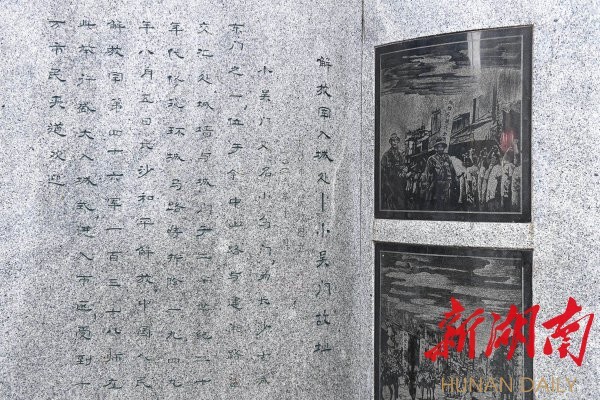 解放军入城处——小吴门故址
小吴门又名小乌门，为长沙
东门之一，位于今中山路与建湘路
交汇处，城墙与城门于二十世纪二十
年代修筑环城马路时拆除。一九四九
年八月五日长沙和平解放，中国人民
解放军第四十六军一百三十八师在
此举行盛大入城式，进入市区，受到十
万市民夹道欢迎
新湖南
HUNAN DAILY